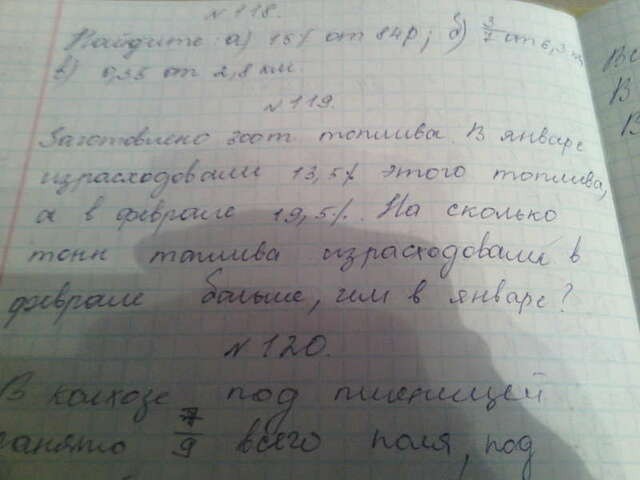 №118.
Найдите: а) 15% от 84р; б) 3/7 от 6,3
в) 0,35 от 2,8 км.
№119.
Заготовлено 300т топлива. В январе
израсходовали 13,5% этого топлива,
а в феврале 19,5%. На сколько
тонн топлива израсходовали в
феврале больше, чем в январе?
№120.
В колхозе под пшеницей
занято 7/9 всего поля, под
В
В